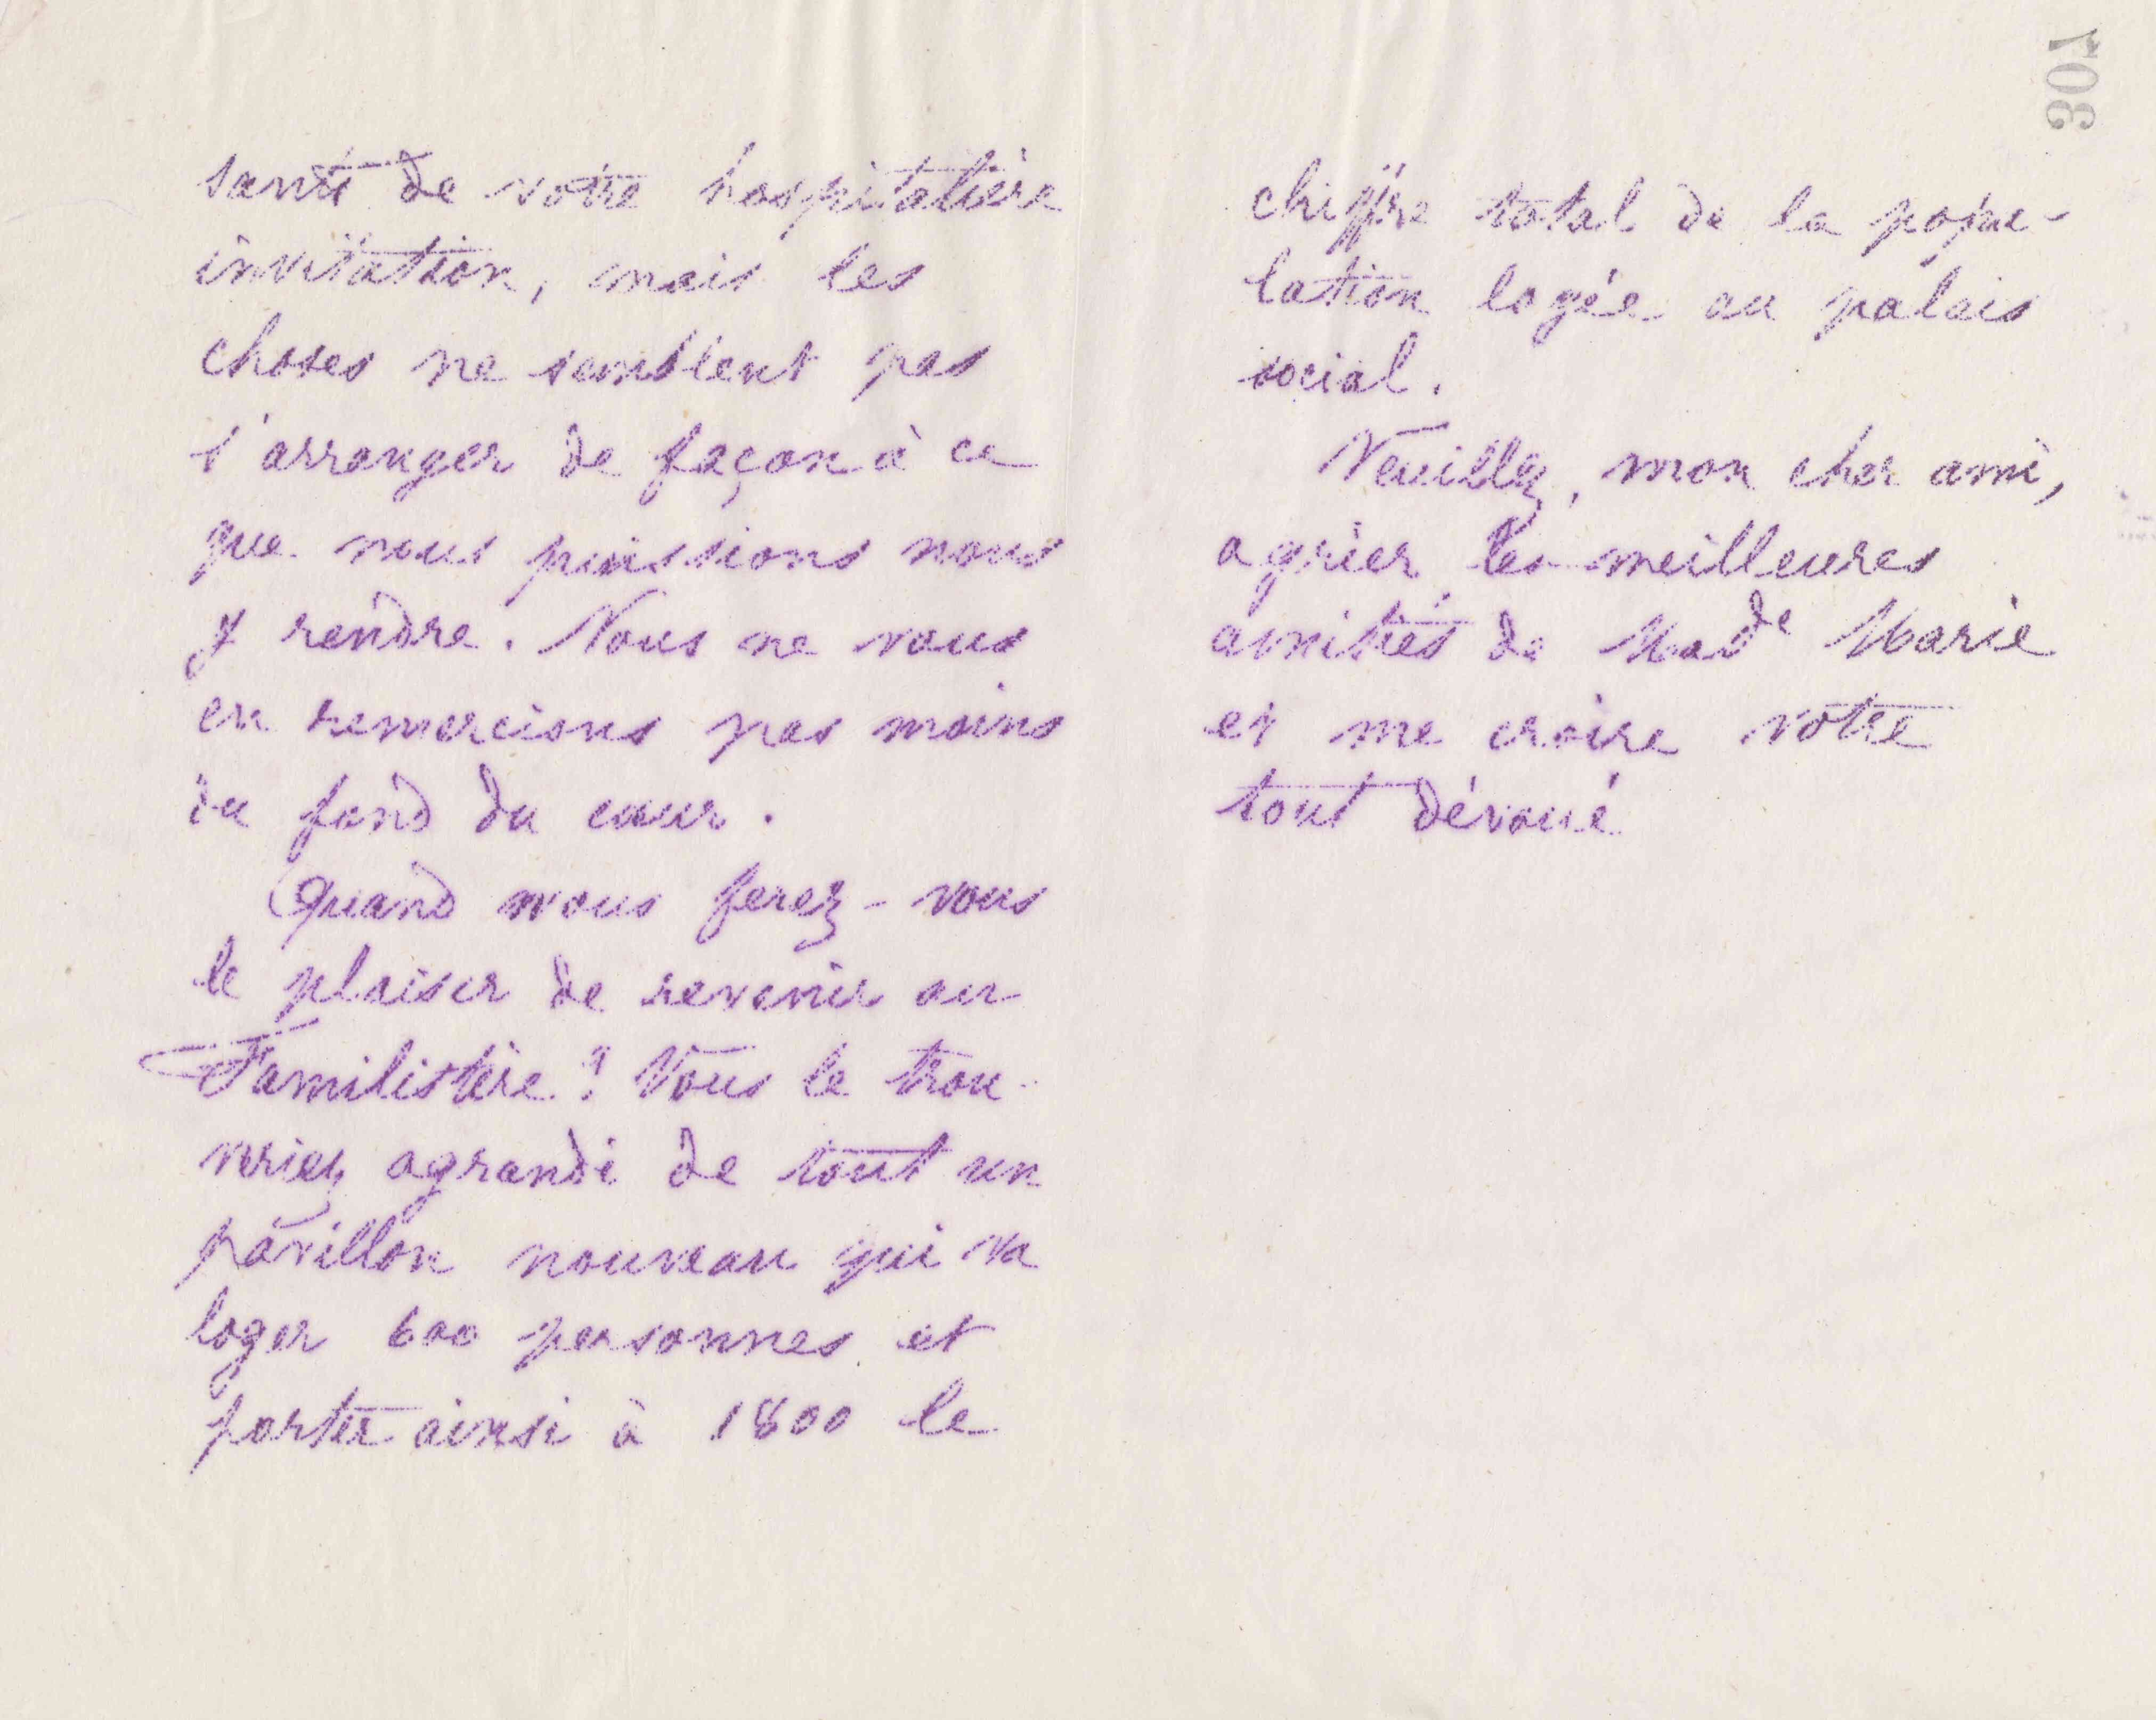 sante de votre hospitalière
invitation, mais les
choses ne semblent pas
s'arranger de façon à ce
que nous puissions nous
y rendre. Nous ne vous
en remercions pas moins
du fond du cœur.
Quand nous ferez-vous
le plaisir de revenir au
Familistère? Vous le trou-
veriez agrandi de tout un
pavillon nouveau qui va
loger 600 personnes et
porter ainsi à 1800 le
308
chiffre total de la popu-
lation logée au palais
social.
Veuillez, mon cher ami,
agréer les meilleures
amitiés de Made Marie
et me croire votre
tout dévoué